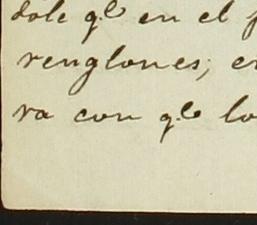 dole q.e en el
renglones; e
ra con q.e lo